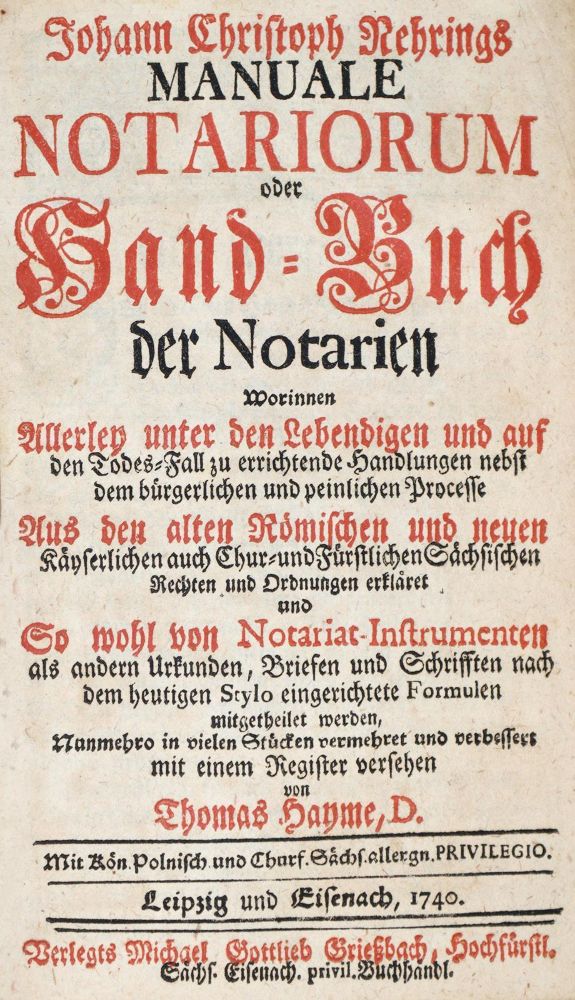 Johann Christoph Nehrings
MANUALE
NOTARIORUM
oder
Hand-Buch
der Notarien
Worinnen
Allerley unter den Lebendigen und auf
den Todes-Fall zu errichtende Handlungen nebst
dem bürgerlichen und peinlichen Processe
Aus den alten Römischen und neuen
Käyserlichen auch Chur- und Fürstlichen Sächsischen
Rechten und Ordnungen erkläret
und
So wohl von Notariat-Instrumenten
als andern Urkunden, Briefen und Schrifften nach
dem heutigen Stylo eingerichtete Formulen
mitgetheilet werden,
Nunmehro in vielen Stücken vermehret und verbessert
mit einem Register versehen
von
Thomas Hayme, D.
Mit Kön. Polnisch. und Churf. Sächs. allergn. PRIVILEGIO.
Leipzig und Eisenach, 1740.
Verlegts Michael Gottlieb Grießbach, Hochfürstl.
Sächs. Eisenach. privil. Buchhandl.